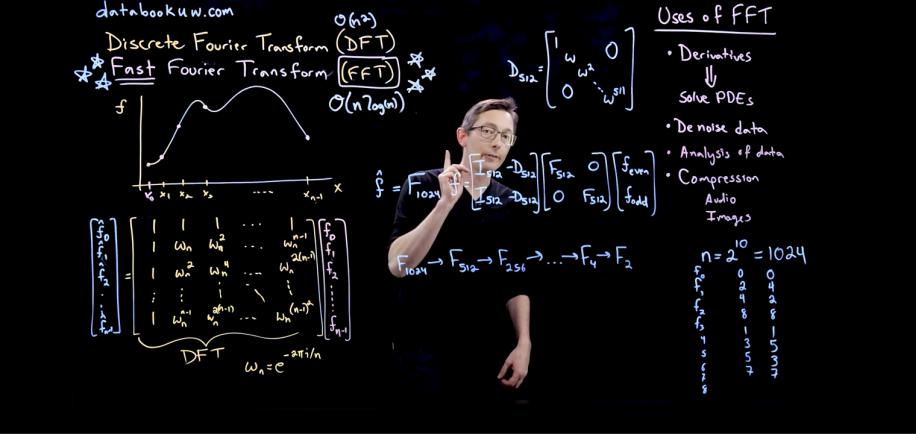 databookuw.com
O(n²)
Discrete Fourier Transform (DFT)
Fast Fourier Transform (FFT)
O(n log(n))
f
x₀ x₁ x₂ x₃ .... xₙ₋₁ x
f̂₀ 1 1 1 ... 1 f₀
f̂₁ 1 ωₙ ωₙ² ... ωₙⁿ⁻¹ f₁
f̂₂ = 1 ωₙ² ωₙ⁴ ωₙ²⁽ⁿ⁻¹⁾ f₂
f̂ₙ₋₁ 1 ωₙⁿ⁻¹ ωₙ²⁽ⁿ⁻¹⁾ ... ωₙ⁽ⁿ⁻¹⁾² fₙ₋₁
DFT
ωₙ = e^(-2πi/n)
D₅₁₂ = 1 0
ω
ω²
0 ω⁵¹¹
f̂ = F₁₀₂₄ f = I₅₁₂ -D₅₁₂ F₅₁₂ 0 f even
I₅₁₂ -D₅₁₂ 0 F₅₁₂ f odd
F₁₀₂₄ → F₅₁₂ → F₂₅₆ → ... → F₄ → F₂
Uses of FFT
• Derivatives
⇓
Solve PDEs
• Denoise data
• Analysis of data
• Compression
Audio
Images
n = 2¹⁰ = 1024
f₀ 0 0
f₁ 2 4
f₂ 4 2
f₃ 8 8
4 1 1
5 3 5
6 5 3
7 7 7
8